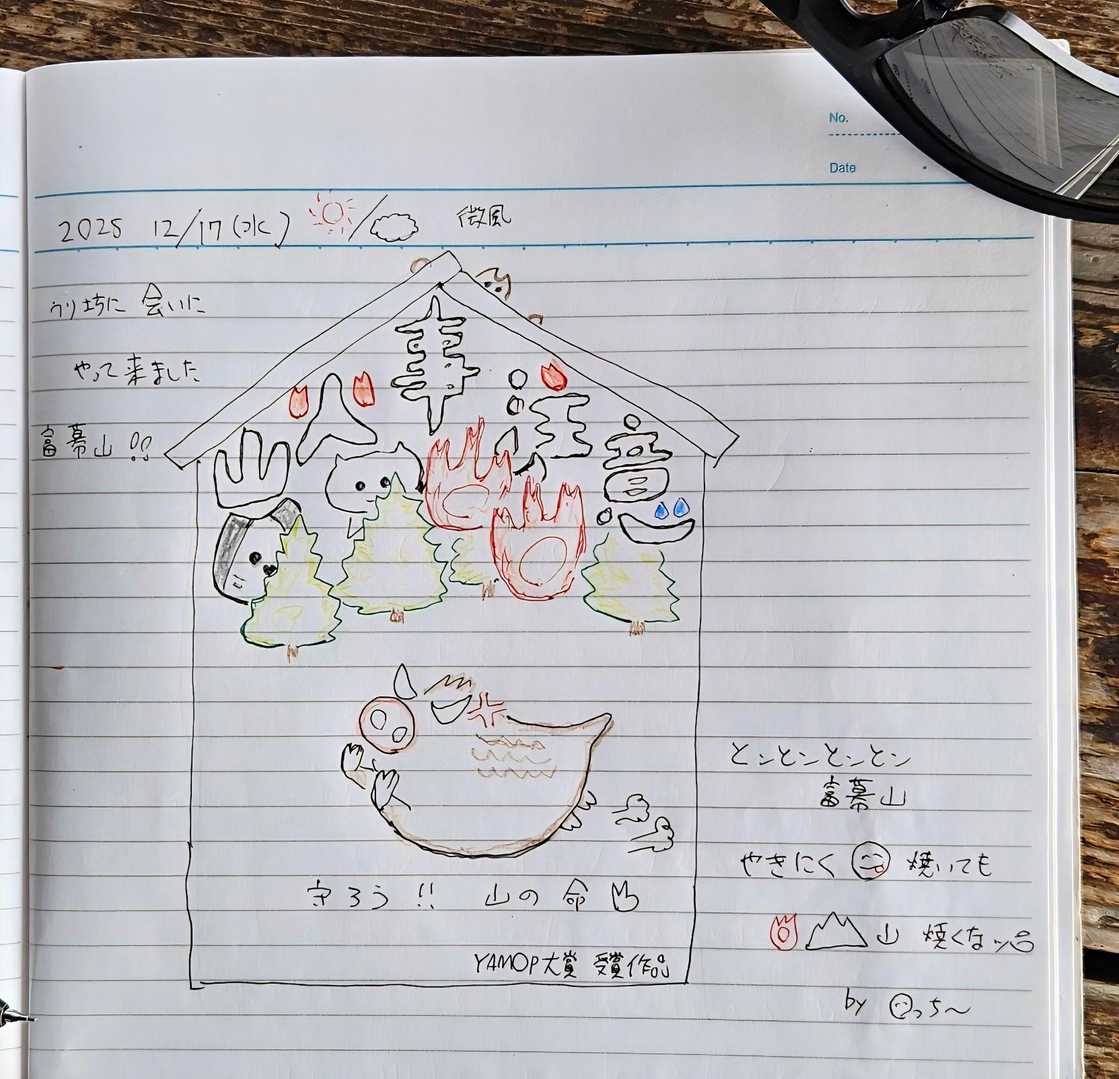 No.
Date
2025 12/17(水) / 微風
ウリ坊に 会いに
やって来ました
富幕山 !!
山火事注意
守ろう !! 山の 命
YAMOP大賞 受賞作品
とンとンとンとン
富幕山
やきにく 焼いても
山 焼くなッ
by っち〜